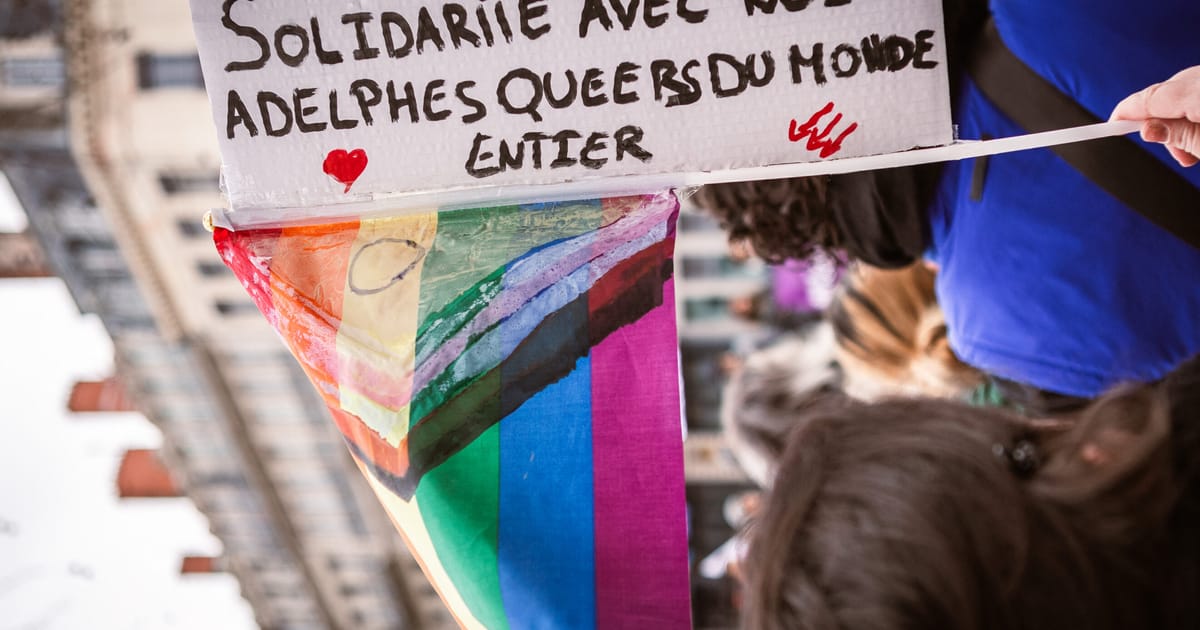 SOLIDARITÉ AVEC NOS
ADELPHES QUEERS DU MONDE
ENTIER